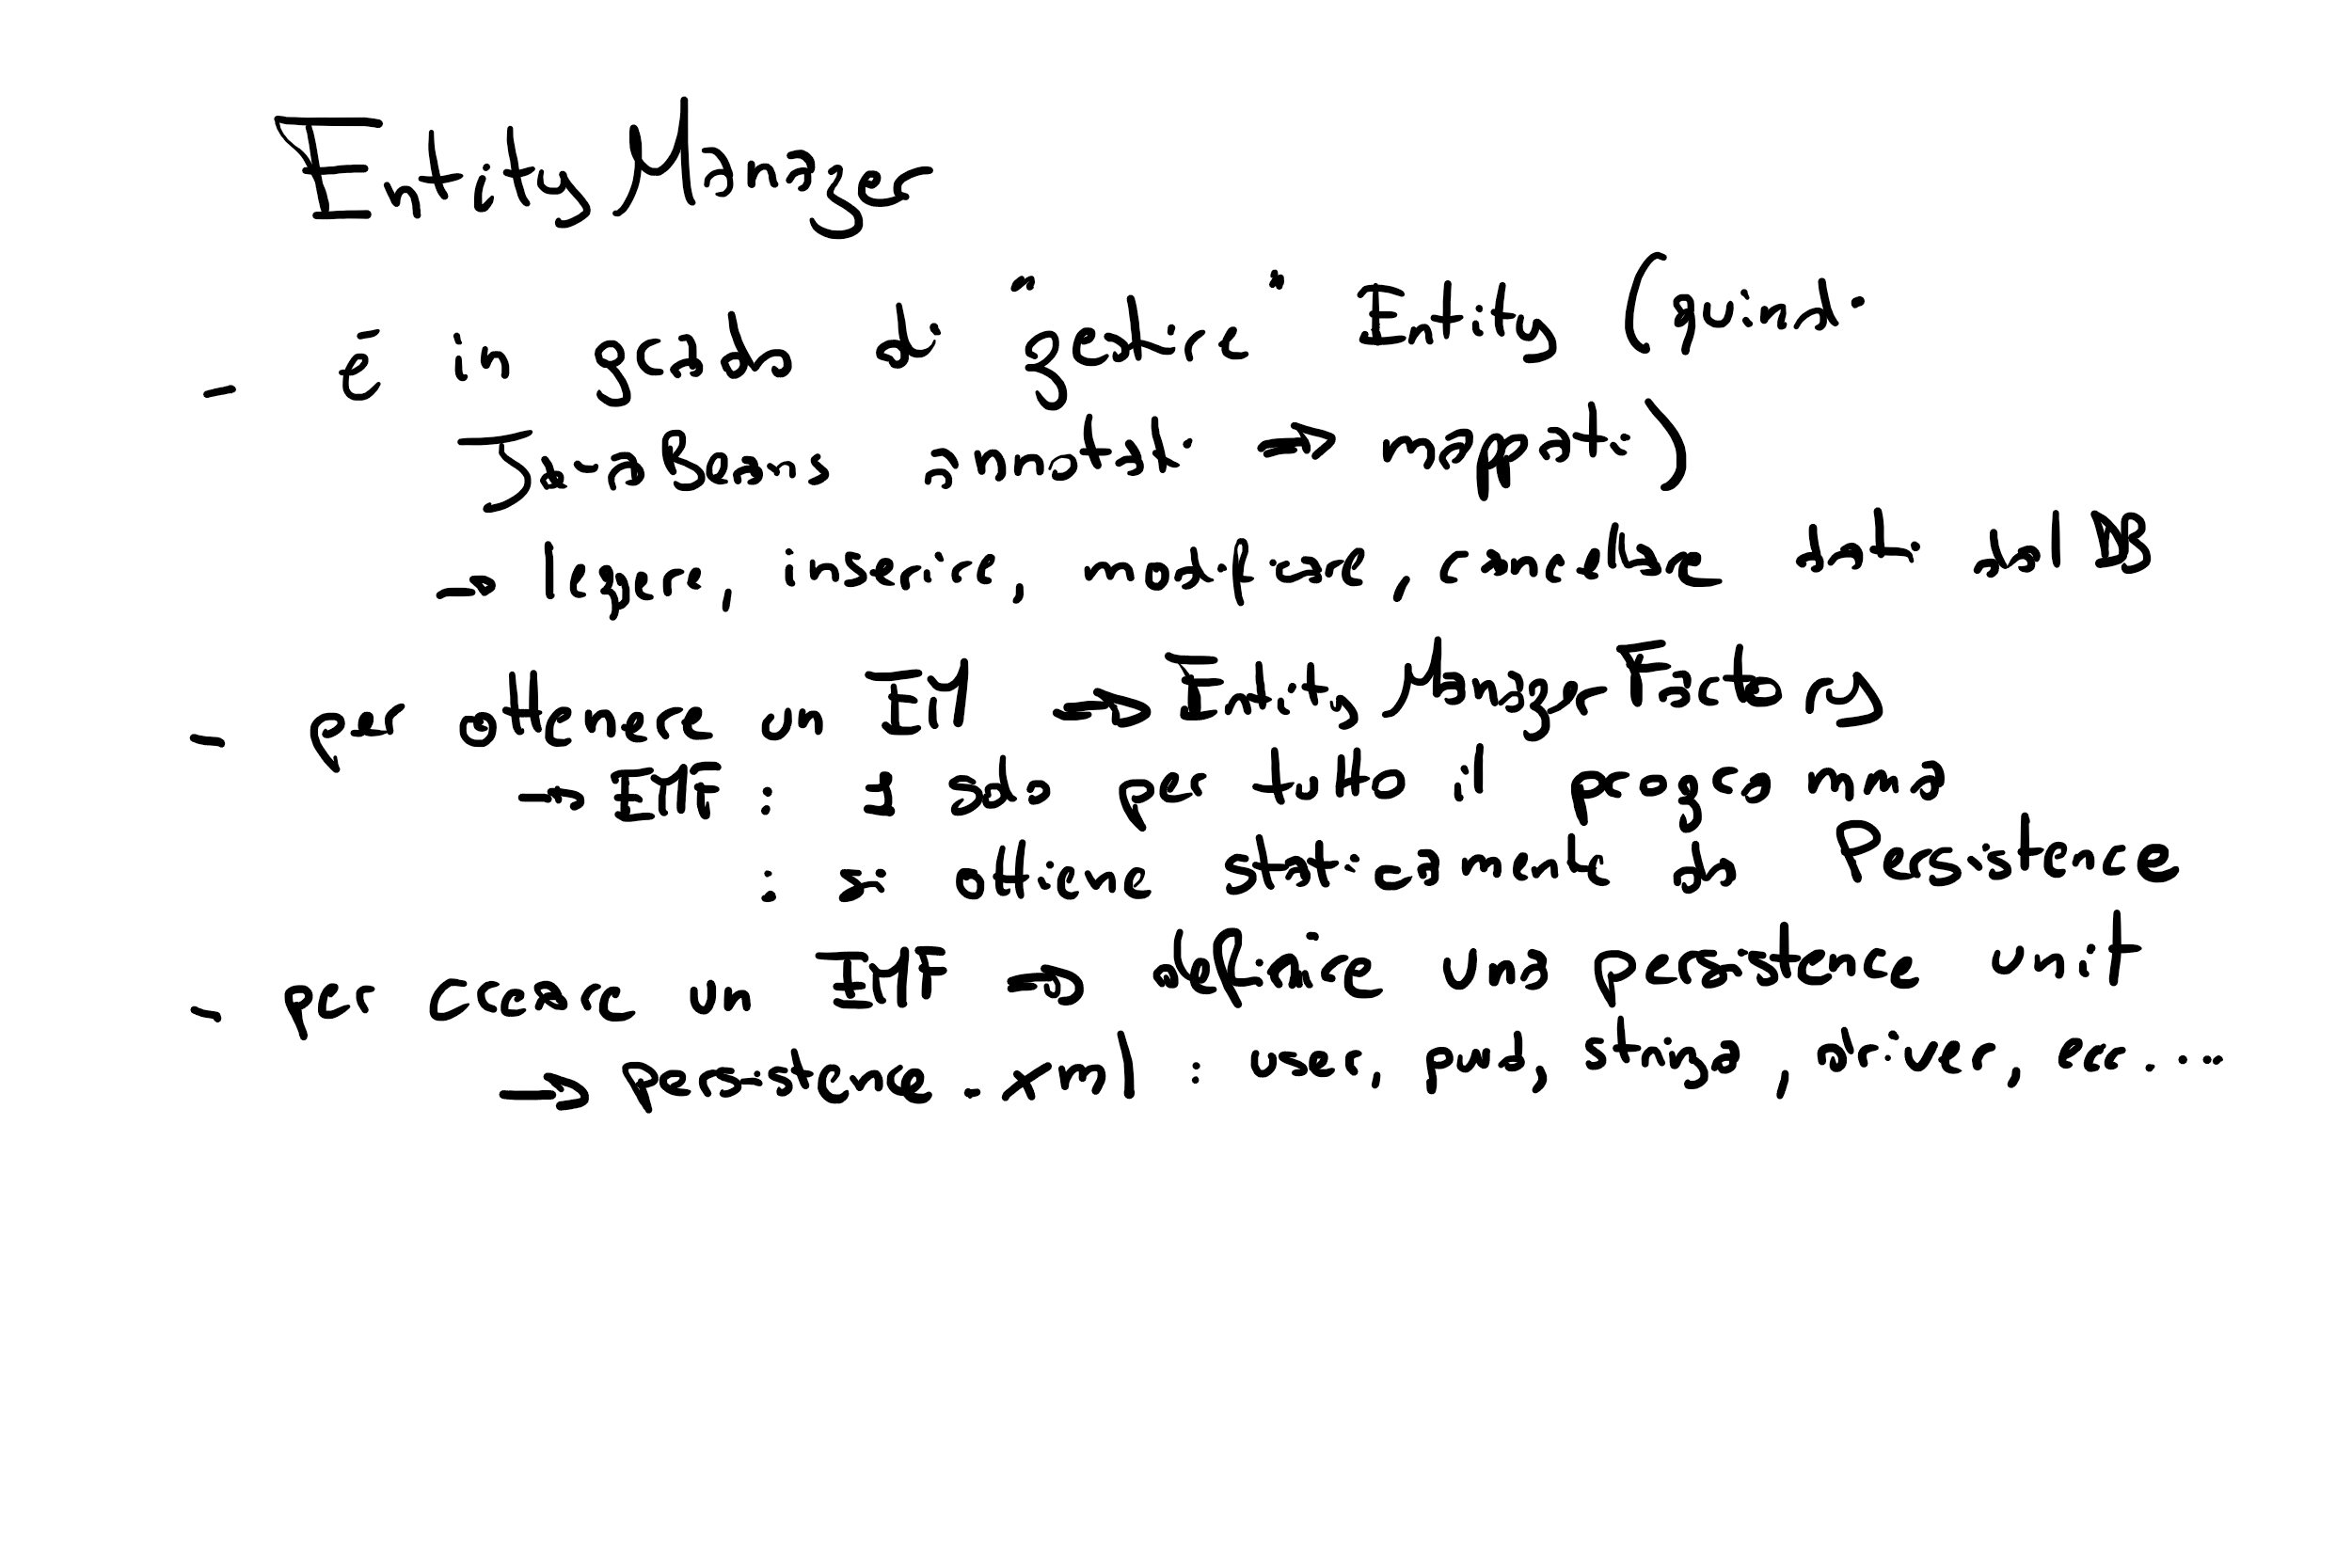 Entity Manager
- è in grado di "gestire" Entity (quindi
JavaBeans annotati => mappati)
-> leggere, inserire, modificare, cancellare dati dal DB
- per ottenere un EM => Entity Manager Factory
-> EMF : 1 solo per tutto il programma
: si ottiene staticamente da Persistence
- per creare un EMF => definire una persistence unit
-> persistence.xml : user, pwd, stringa, driver, ecc....